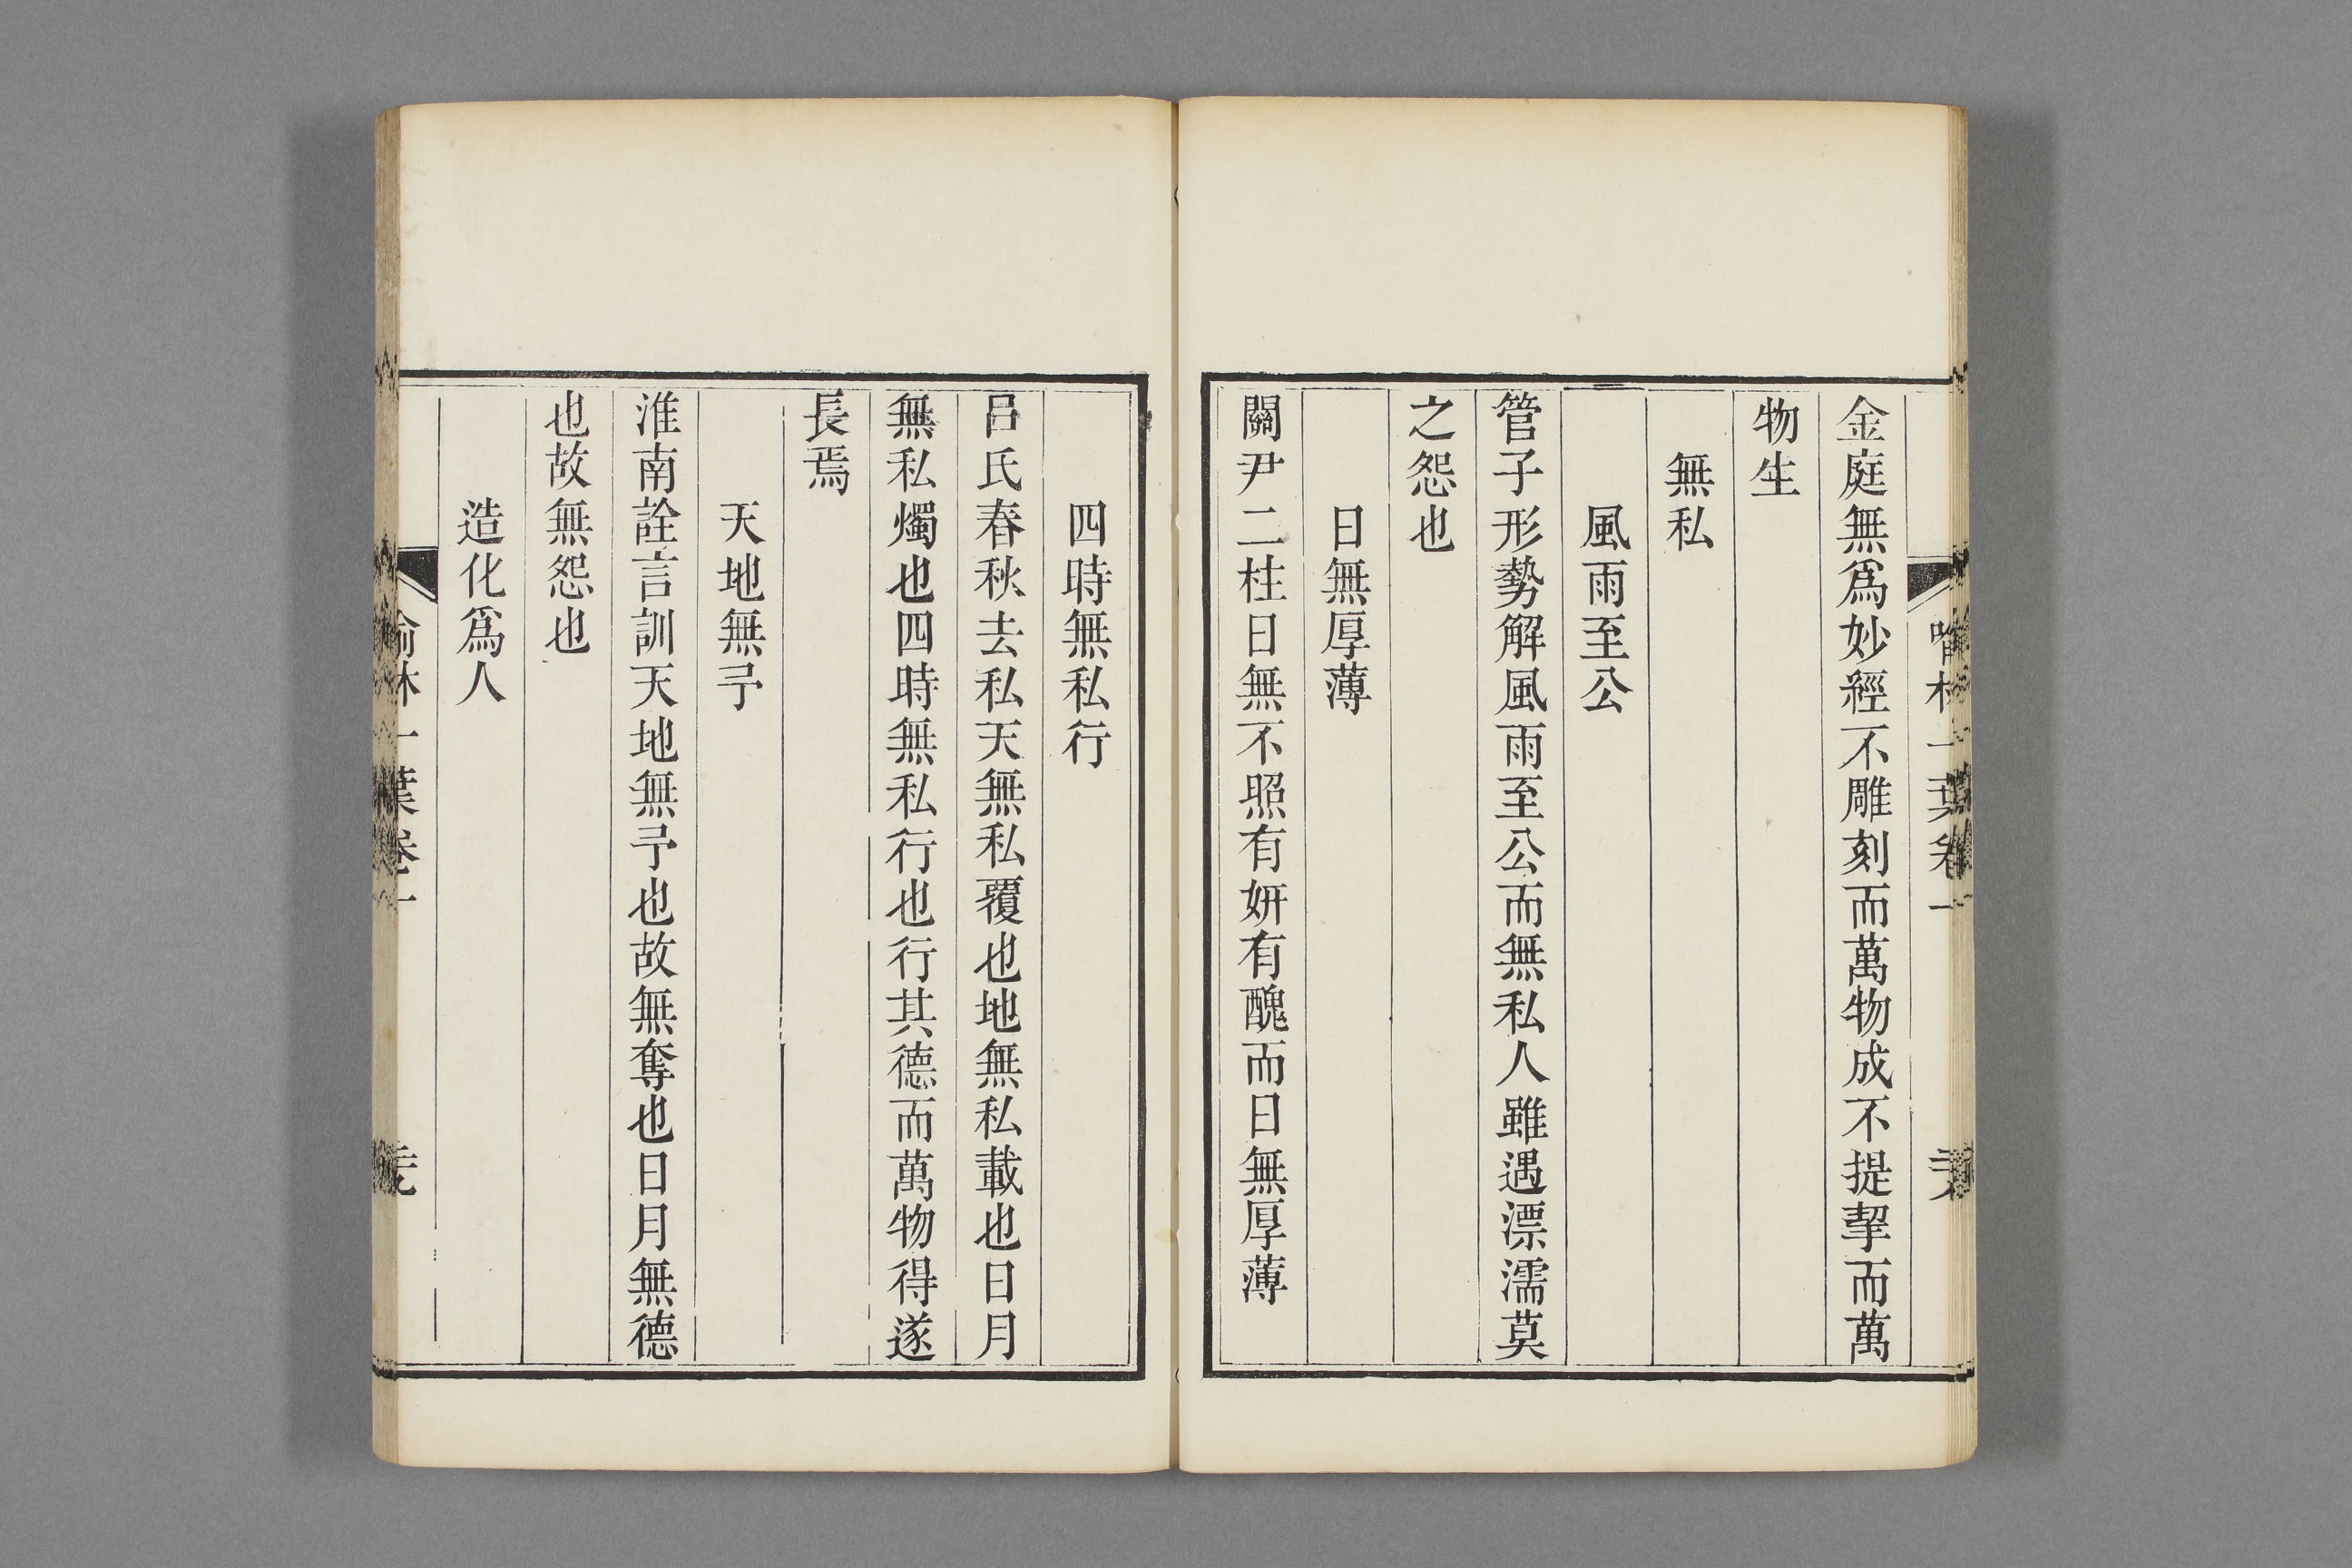 金庭無爲妙經不雕刻而萬物成不提挈而萬
物生
無私
風雨至公
管子形勢解風雨至公而無私人雖遇漂濡莫
之怨也
日無厚薄
關尹二柱日無不照有妍有醜而日無厚薄
四時無私行
吕氏春秋去私天無私覆也地無私載也日月
無私燭也四時無私行也行其德而萬物得遂
長焉
天地無予
淮南詮言訓天地無予也故無奪也日月無德
也故無怨也
造化爲人
喻林一葉卷一